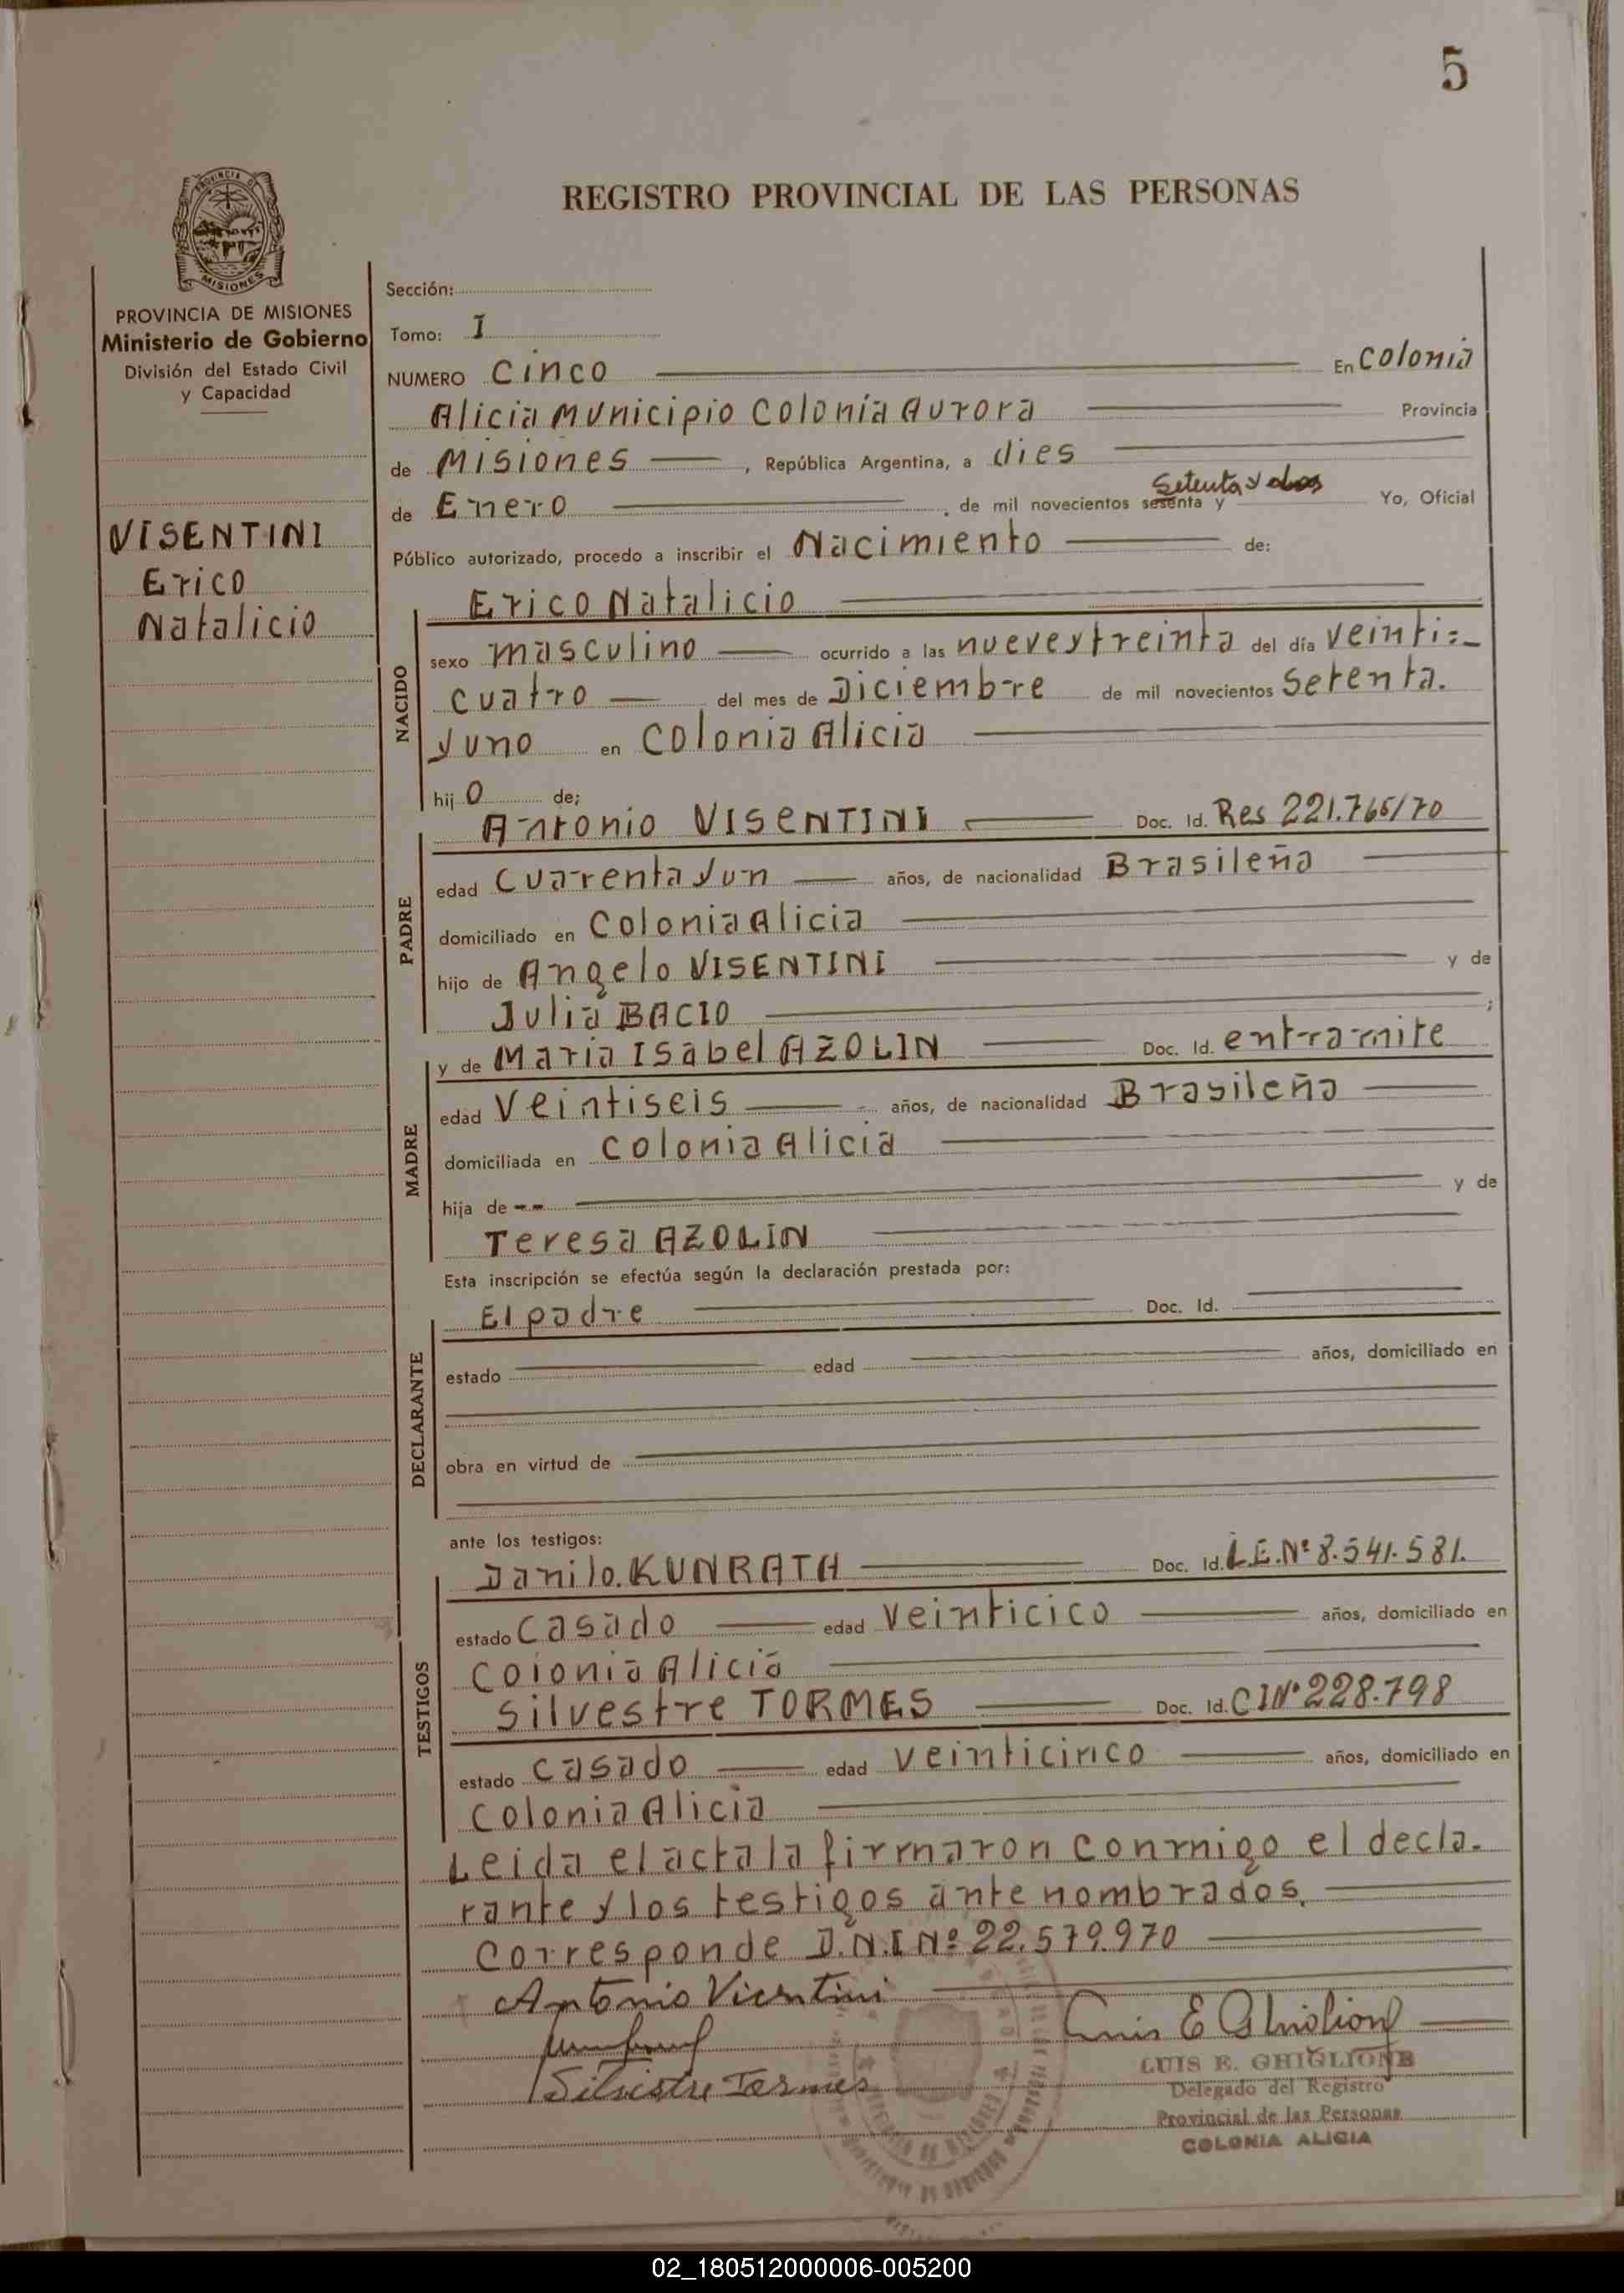 5
REGISTRO PROVINCIAL DE LAS PERSONAS
PROVINCIA DE MISIONES
Ministerio de Gobierno
División del Estado Civil
y Capacidad
VISENTINI
Erico
Natalicio
Sección:
Tomo: I
NUMERO Cinco En Colonia
Alicia Municipio Colonia Aurora Provincia
de Misiones, República Argentina, a dies
de Enero, de mil novecientos sesenta y Setenta y dos Yo, Oficial
Público autorizado, procedo a inscribir el Nacimiento de:
Erico Natalicio
NACIDO
sexo masculino ocurrido a las nueve y treinta del día veinti=
cuatro del mes de Diciembre de mil novecientos Setenta.
y uno en Colonia Alicia
hijo de;
PADRE
Antonio VISENTINI Doc. Id. Res 221.765/70
edad Cuarenta y un años, de nacionalidad Brasileña
domiciliado en Colonia Alicia
hijo de Angelo VISENTINI y de
Julia BACIO;
MADRE
y de Maria Isabel AZOLIN Doc. Id. entramite
edad Veintiseis años, de nacionalidad Brasileña
domiciliada en Colonia Alicia
hija de -- y de
Teresa AZOLIN
Esta inscripción se efectúa según la declaración prestada por:
DECLARANTE
El padre Doc. Id.
estado edad años, domiciliado en
obra en virtud de
ante los testigos:
TESTIGOS
Danilo. KUNRATH Doc. Id. L.E. Nº 8.541.581.
estado Casado edad Veinticico años, domiciliado en
Colonia Alicia
Silvestre TORMES Doc. Id. C I Nº 228.798
estado Casado edad veinticinco años, domiciliado en
Colonia Alicia
Leida el acta la firmaron conmigo el decla-
rante y los testigos ante nombrados.
Corresponde D.N.I Nº 22.579.970
Antonio Vicentini
Luis E Ghiglione
Silvestre Tormes
LUIS E. GHIGLIONE
Delegado del Registro
Provincial de las Personas
COLONIA ALICIA
02_180512000006-005200